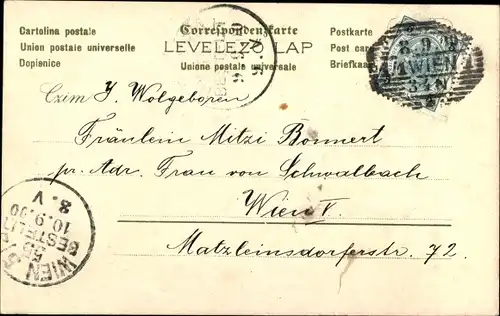 Cartolina postale
Union postale universelle
Dopisnice
Correspondenzkarte
LEVELEZŐ LAP
Unione postale universale
Postkarte
Post card
Briefkaart
8.9.
WIEN
Wolgeboren
Fräulein Mitzi Bonnert
pr. Adr. Frau von Schwalbach
Wien V.
Matzleinsdorferstr. 72.
WIEN
BESTELLT
10.9.00
8.V